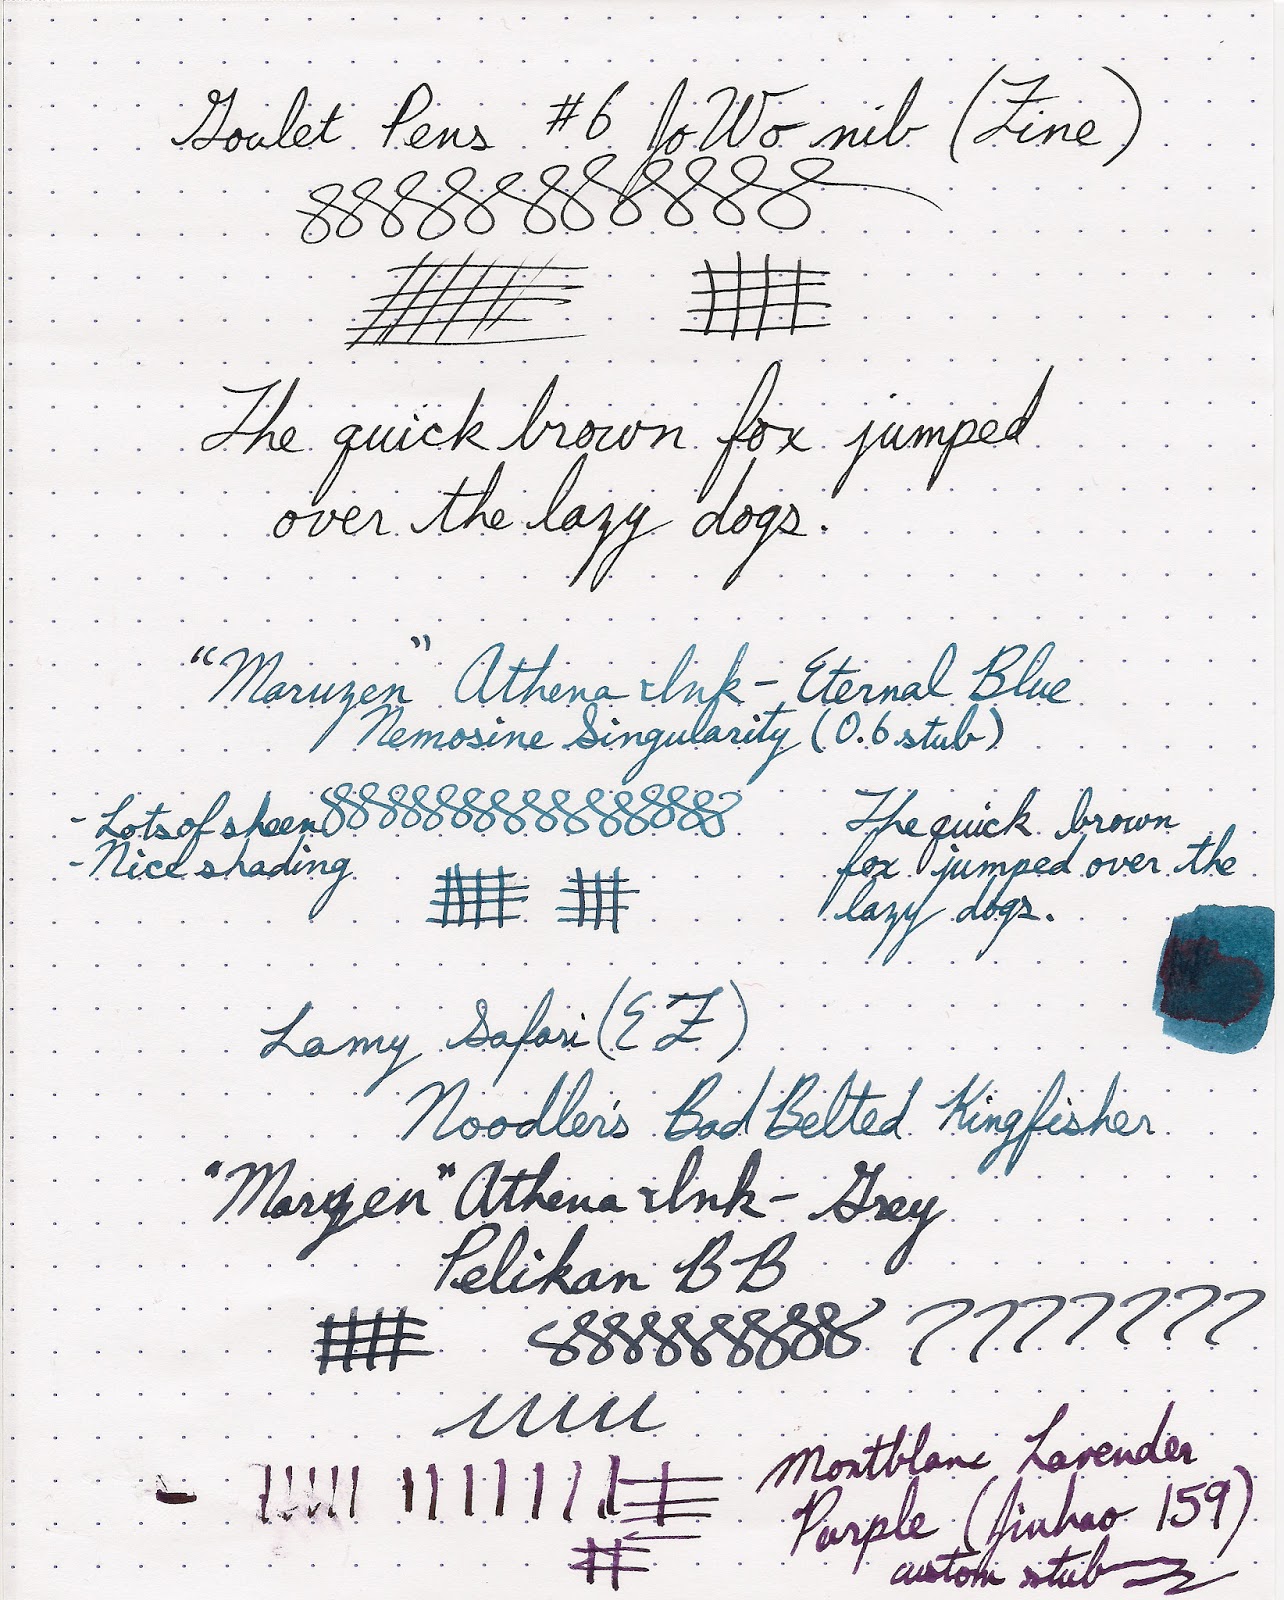 Goulet Pens #6 JoWo nib (Fine)
88888888888
The quick brown fox jumped
over the lazy dogs.
"Maruzen" Athena Ink - Eternal Blue
Nemosine Singularity (0.6 stub)
- Lots of sheen
- Nice shading
The quick brown
fox jumped over the
lazy dogs.
Lamy Safari (EF)
Noodler's Bad Belted Kingfisher
"Maruzen" Athena Ink - Grey
Pelikan BB
Montblanc Lavender
Purple (Jinhao 159)
custom stub